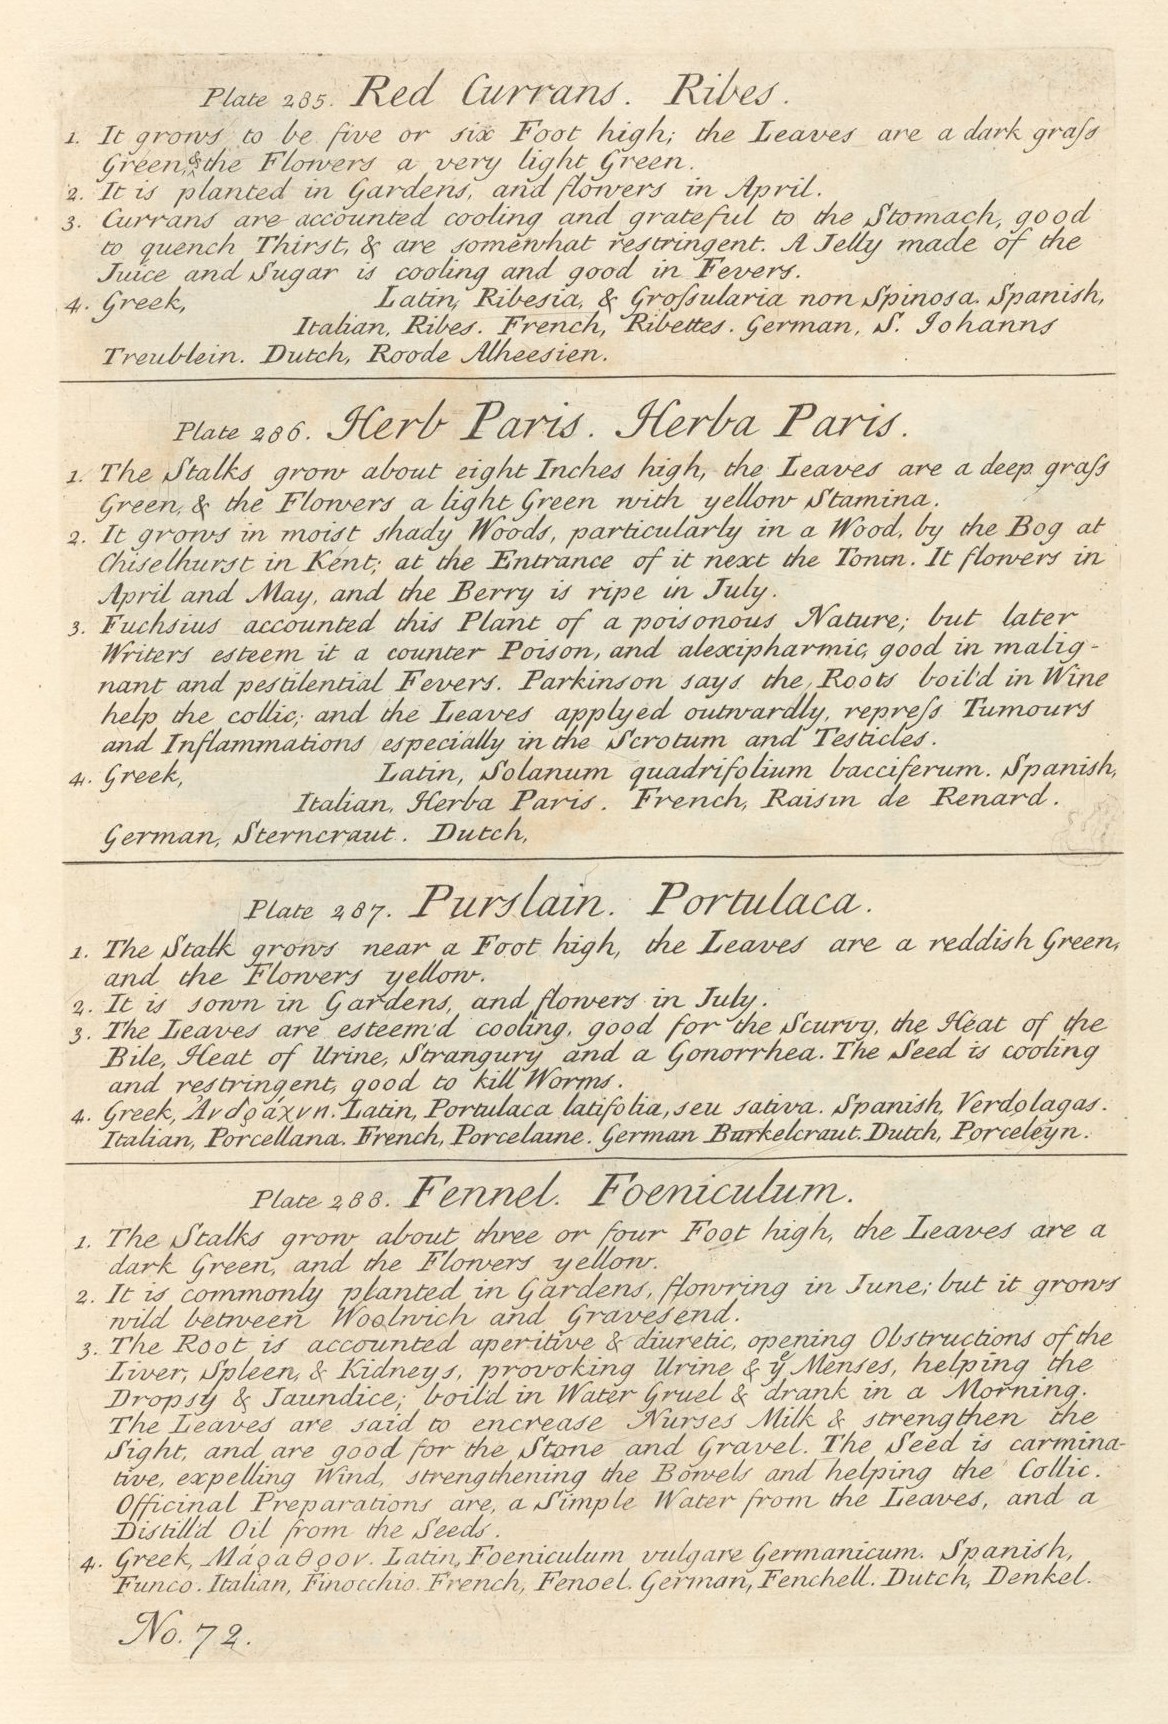 Plate 285. Red Currans. Ribes.
1. It grows to be five or six Foot high; the Leaves are a dark graſs
Green, & the Flowers a very light Green.
2. It is planted in Gardens, and flowers in April.
3. Currans are accounted cooling and grateful to the Stomach, good
to quench Thirst, & are somewhat restringent. A Jelly made of the
Juice and Sugar is cooling and good in Fevers.
4. Greek, Latin, Ribesia, & Groſsularia non Spinosa. Spanish,
Italian, Ribes. French, Ribettes. German, S. Johanns
Treublein. Dutch, Roode Alheesien.
Plate 286. Herb Paris. Herba Paris.
1. The Stalks grow about eight Inches high, the Leaves are a deep graſs
Green, & the Flowers a light Green with yellow Stamina.
2. It grows in moist shady Woods, particularly in a Wood, by the Bog at
Chiselhurst in Kent; at the Entrance of it next the Town. It flowers in
April and May, and the Berry is ripe in July.
3. Fuchsius accounted this Plant of a poisonous Nature; but later
Writers esteem it a counter Poison, and alexipharmic, good in malig-
nant and pestilential Fevers. Parkinson says the Roots boil'd in Wine
help the collic; and the Leaves applyed outwardly, repreſs Tumours
and Inflammations especially in the Scrotum and Testicles.
4. Greek, Latin, Solanum quadrifolium bacciferum. Spanish,
Italian, Herba Paris. French, Raisin de Renard.
German, Sterncraut. Dutch,
Plate 287. Purslain. Portulaca.
1. The Stalk grows near a Foot high, the Leaves are a reddish Green,
and the Flowers yellow.
2. It is sown in Gardens, and flowers in July.
3. The Leaves are esteem'd cooling, good for the Scurvy, the Heat of the
Bile, Heat of Urine, Strangury and a Gonorrhea. The Seed is cooling
and restringent, good to kill Worms.
4. Greek, Ἀνδράχνη. Latin, Portulaca latifolia, seu sativa. Spanish, Verdolagas.
Italian, Porcellana. French, Porcelaine. German Burkelcraut. Dutch, Porceleyn.
Plate 288. Fennel. Foeniculum.
1. The Stalks grow about three or four Foot high, the Leaves are a
dark Green, and the Flowers yellow.
2. It is commonly planted in Gardens, flowring in June; but it grows
wild between Woolwich and Gravesend.
3. The Root is accounted aperitive & diuretic, opening Obstructions of the
Liver, Spleen, & Kidneys, provoking Urine & yͤ Menses, helping the
Dropsy & Jaundice; boil'd in Water Gruel & drank in a Morning.
The Leaves are said to encrease Nurses Milk & strengthen the
Sight, and are good for the Stone and Gravel. The Seed is carmina-
tive, expelling Wind, strengthening the Bowels and helping the Collic.
Officinal Preparations are, a Simple Water from the Leaves, and a
Distill'd Oil from the Seeds.
4. Greek, Μάραθρον. Latin, Foeniculum vulgare Germanicum. Spanish,
Funco. Italian, Finocchio. French, Fenoel. German, Fenchell. Dutch, Denkel.
No. 72.